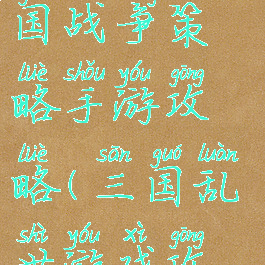 国战争策
lüè shǒu yóu gōng
略手游攻
lüè sān guó luàn
略(三国乱
shì yóu xì gōng
世游戏攻